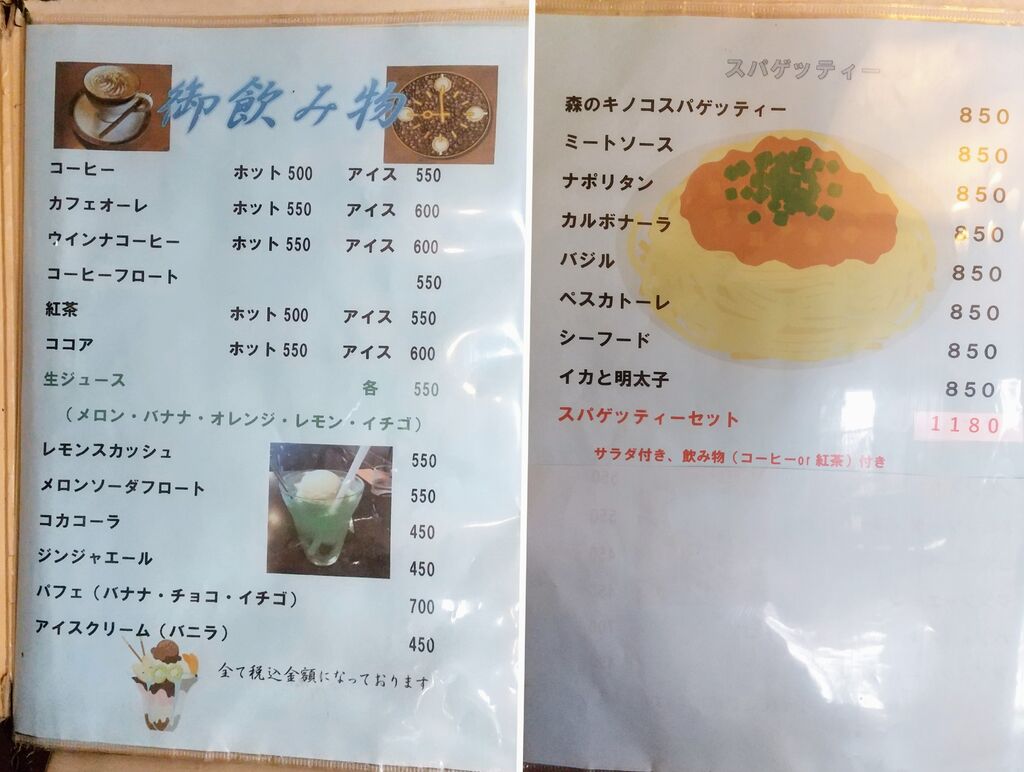 御飲み物
コーヒー ホット500 アイス 550
カフェオーレ ホット550 アイス 600
ウインナコーヒー ホット550 アイス 600
コーヒーフロート 550
紅茶 ホット500 アイス 550
ココア ホット550 アイス 600
生ジュース 各 550
（メロン・バナナ・オレンジ・レモン・イチゴ）
レモンスカッシュ 550
メロンソーダフロート 550
コカコーラ 450
ジンジャエール 450
パフェ（バナナ・チョコ・イチゴ） 700
アイスクリーム（バニラ） 450
全て税込金額になっております
スパゲッティー
森のキノコスパゲッティー 850
ミートソース 850
ナポリタン 850
カルボナーラ 850
バジル 850
ペスカトーレ 850
シーフード 850
イカと明太子 850
スパゲッティーセット 1180
サラダ付き、飲み物（コーヒーor紅茶）付き